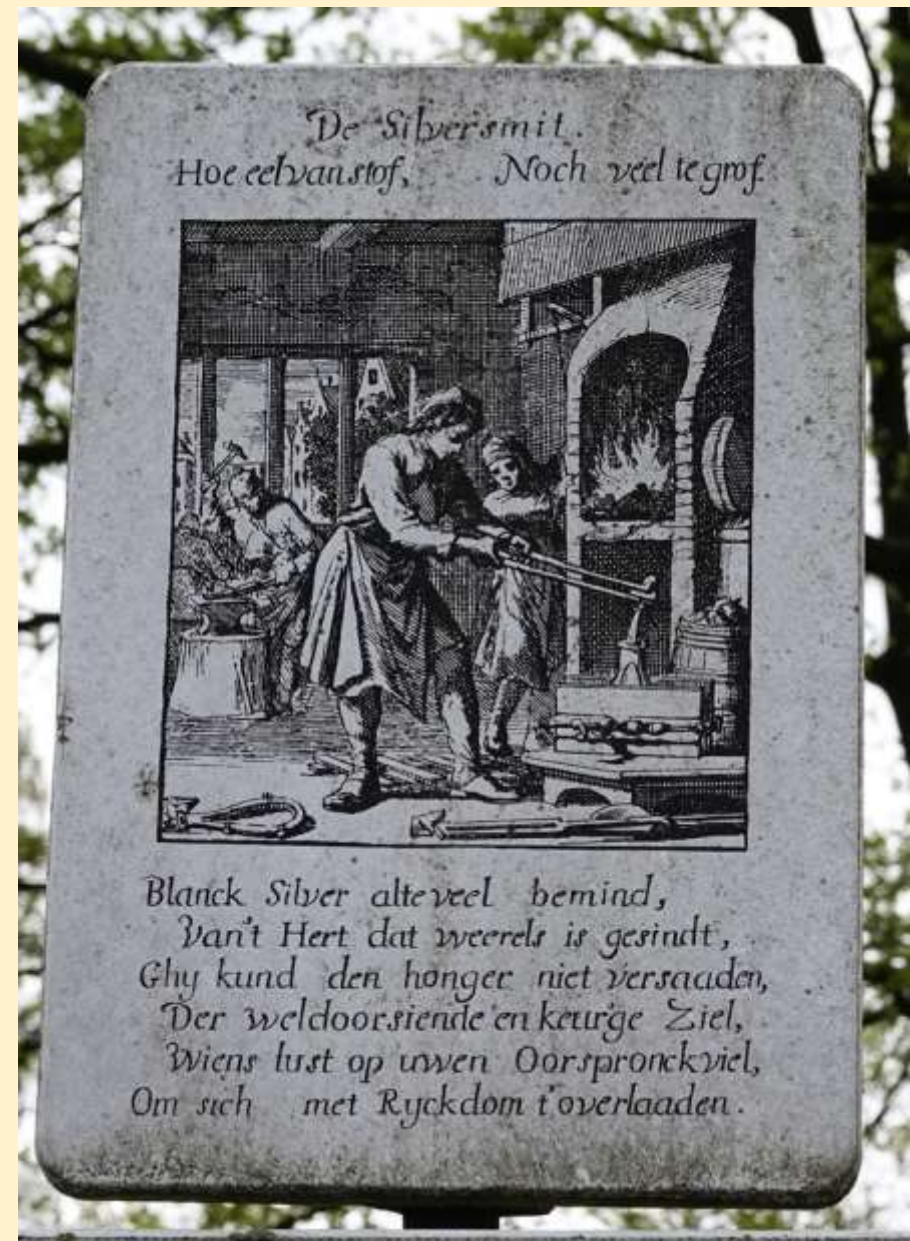 De Silversmit.
Hoe eel van stof, Noch veel te grof.
Blanck Silver alte veel bemind,
Van't Hert dat weerels is gesindt,
Ghy kund den honger niet versaaden,
Der weldoorsiende en keur'ge Ziel,
Wiens lust op uwen Oorspronck viel,
Om sich met Ryckdom t'overlaaden.